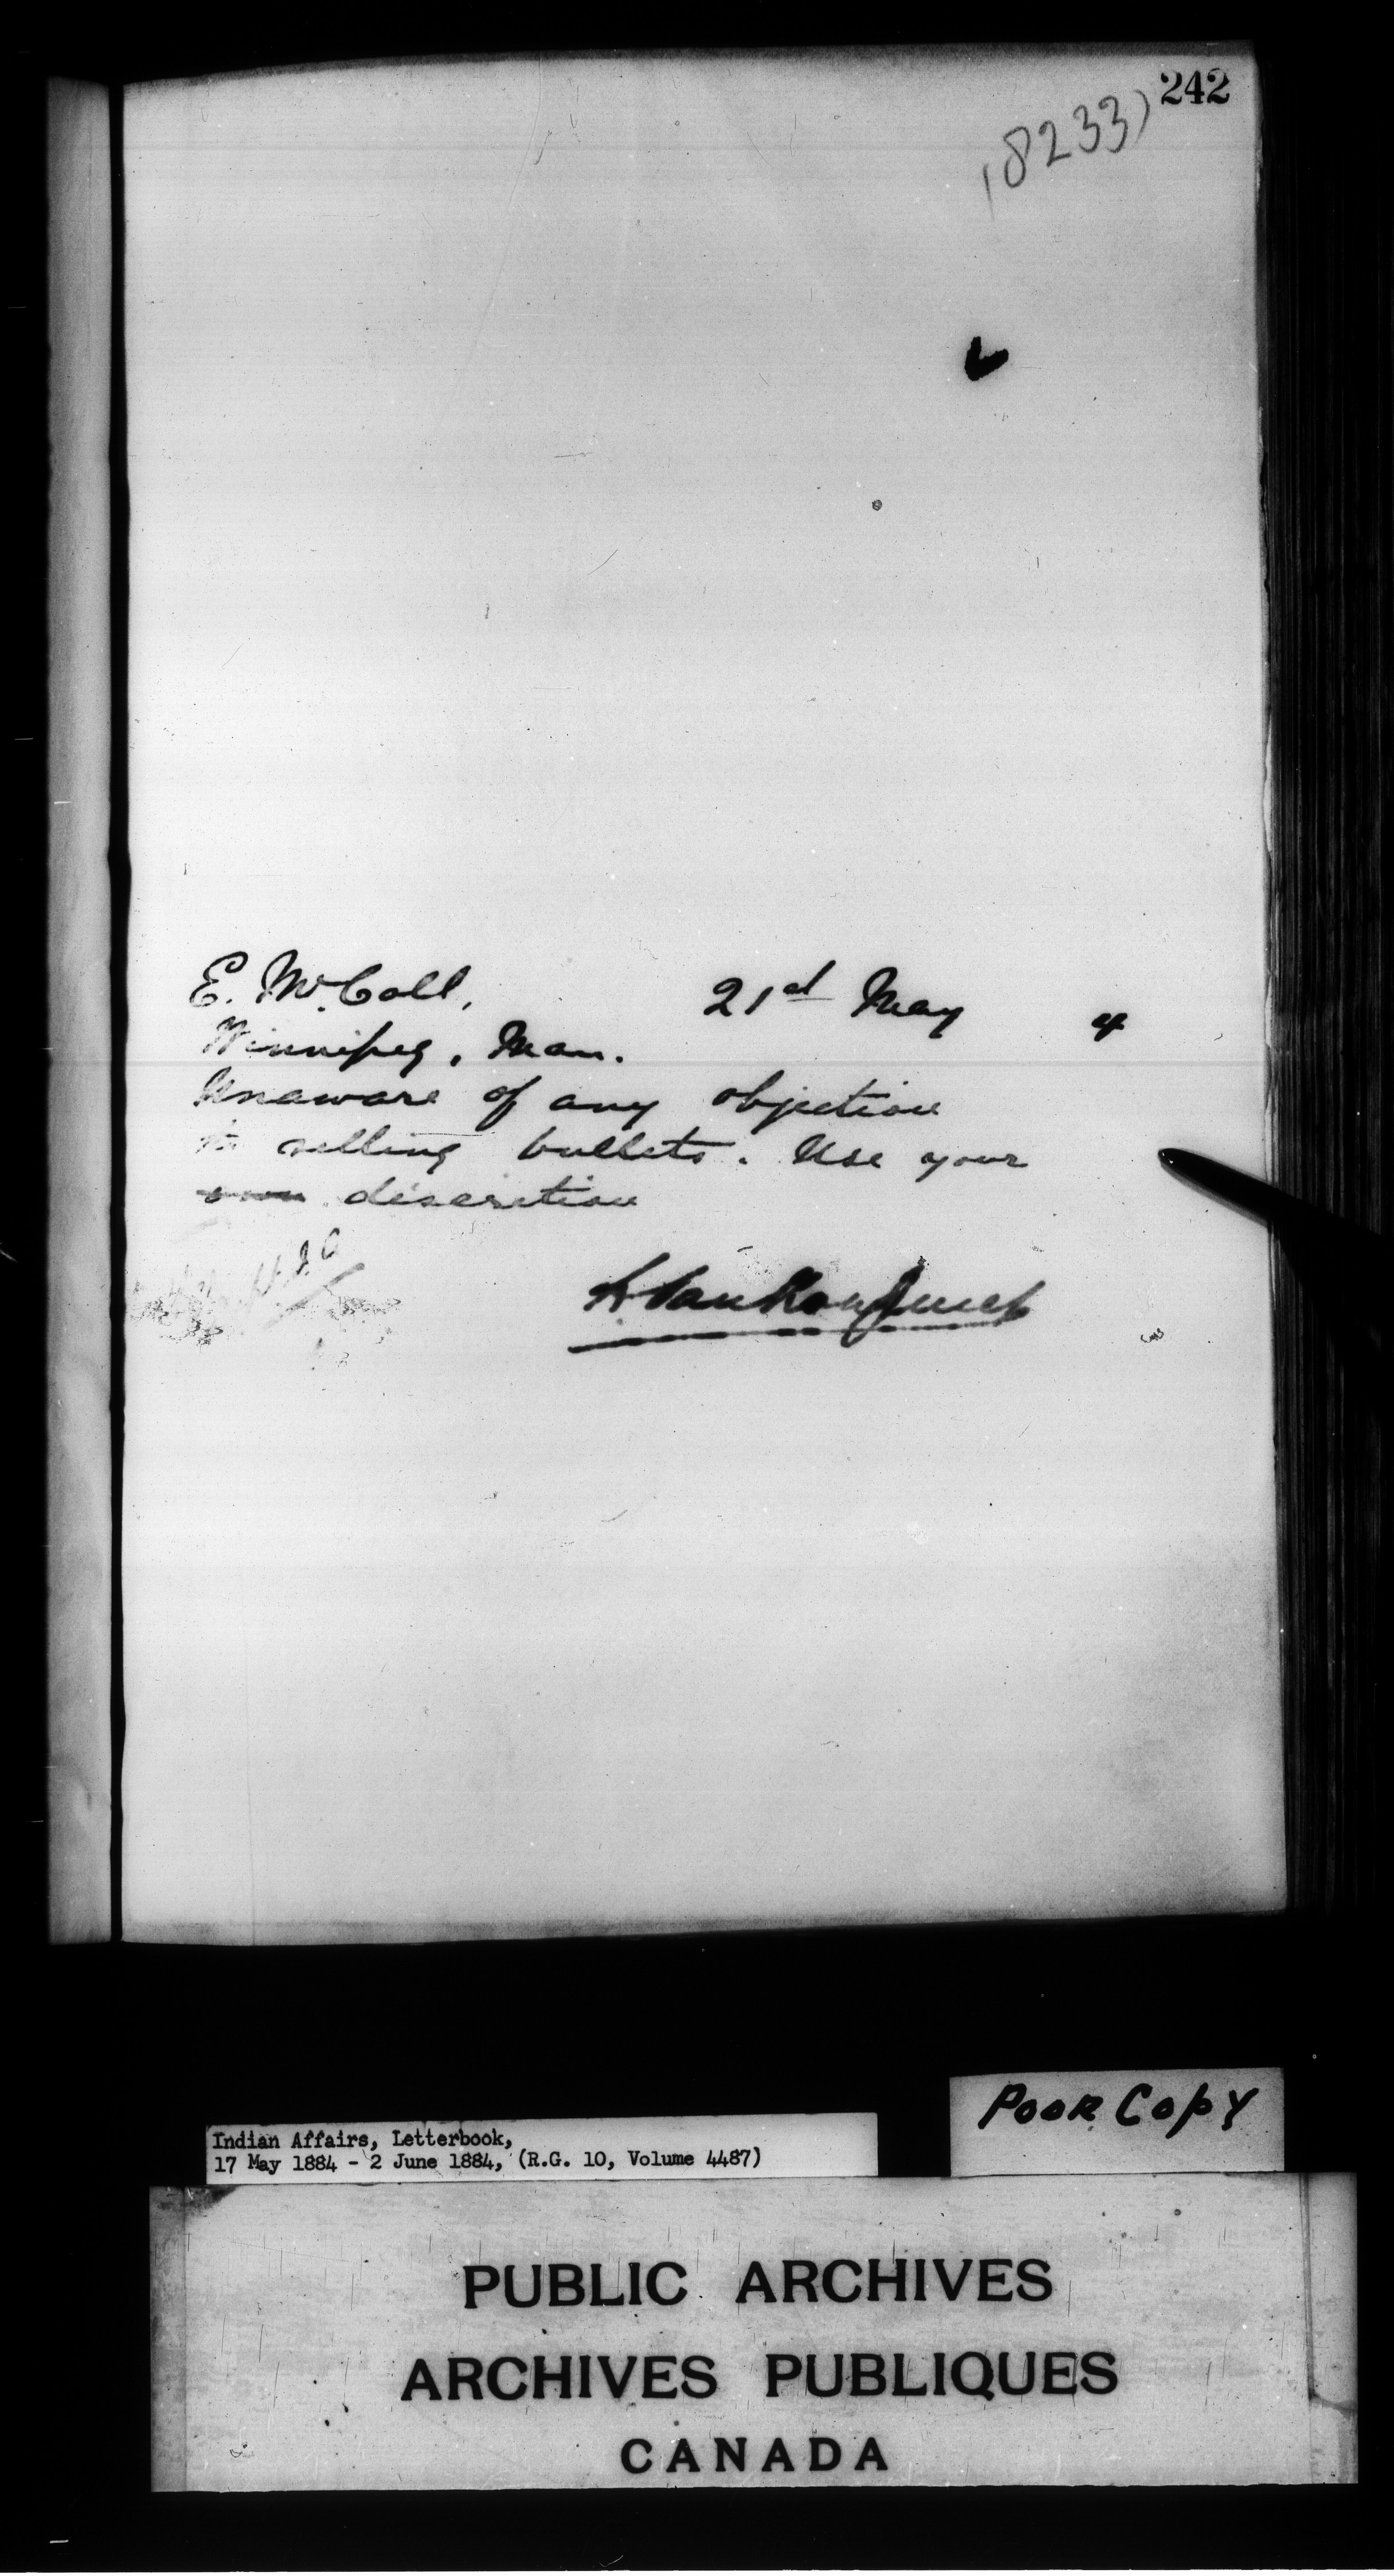 242
(8233)
E. McColl, 21st May 4
Winnipeg, Man.
Unaware of any objection
to selling bullets. Use your
own discretion
L VanKoughnet
Indian Affairs, Letterbook,
17 May 1884 - 2 June 1884, (R.G. 10, Volume 4487)
Poor Copy
PUBLIC ARCHIVES
ARCHIVES PUBLIQUES
CANADA